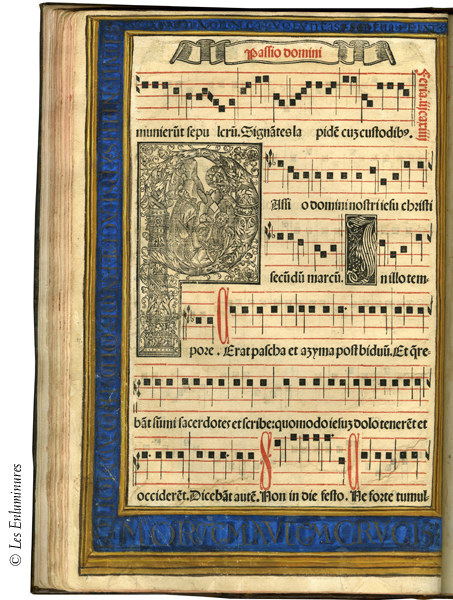 Passio domini
Feria
munierūt sepu lcrū. Signātes la pidē cuz custodibꝰ.
Assi o domini nostri iesu christi
secūdū marcū. In illo tem-
pore. Erat pascha et azyma post biduū. Et q̄re-
bāt sūmi sacerdotes et scribe: quomodo iesuz dolo tenerēt et
occiderēt. Dicebāt autē. Non in die festo. Ne forte tumul
© Les Enluminures